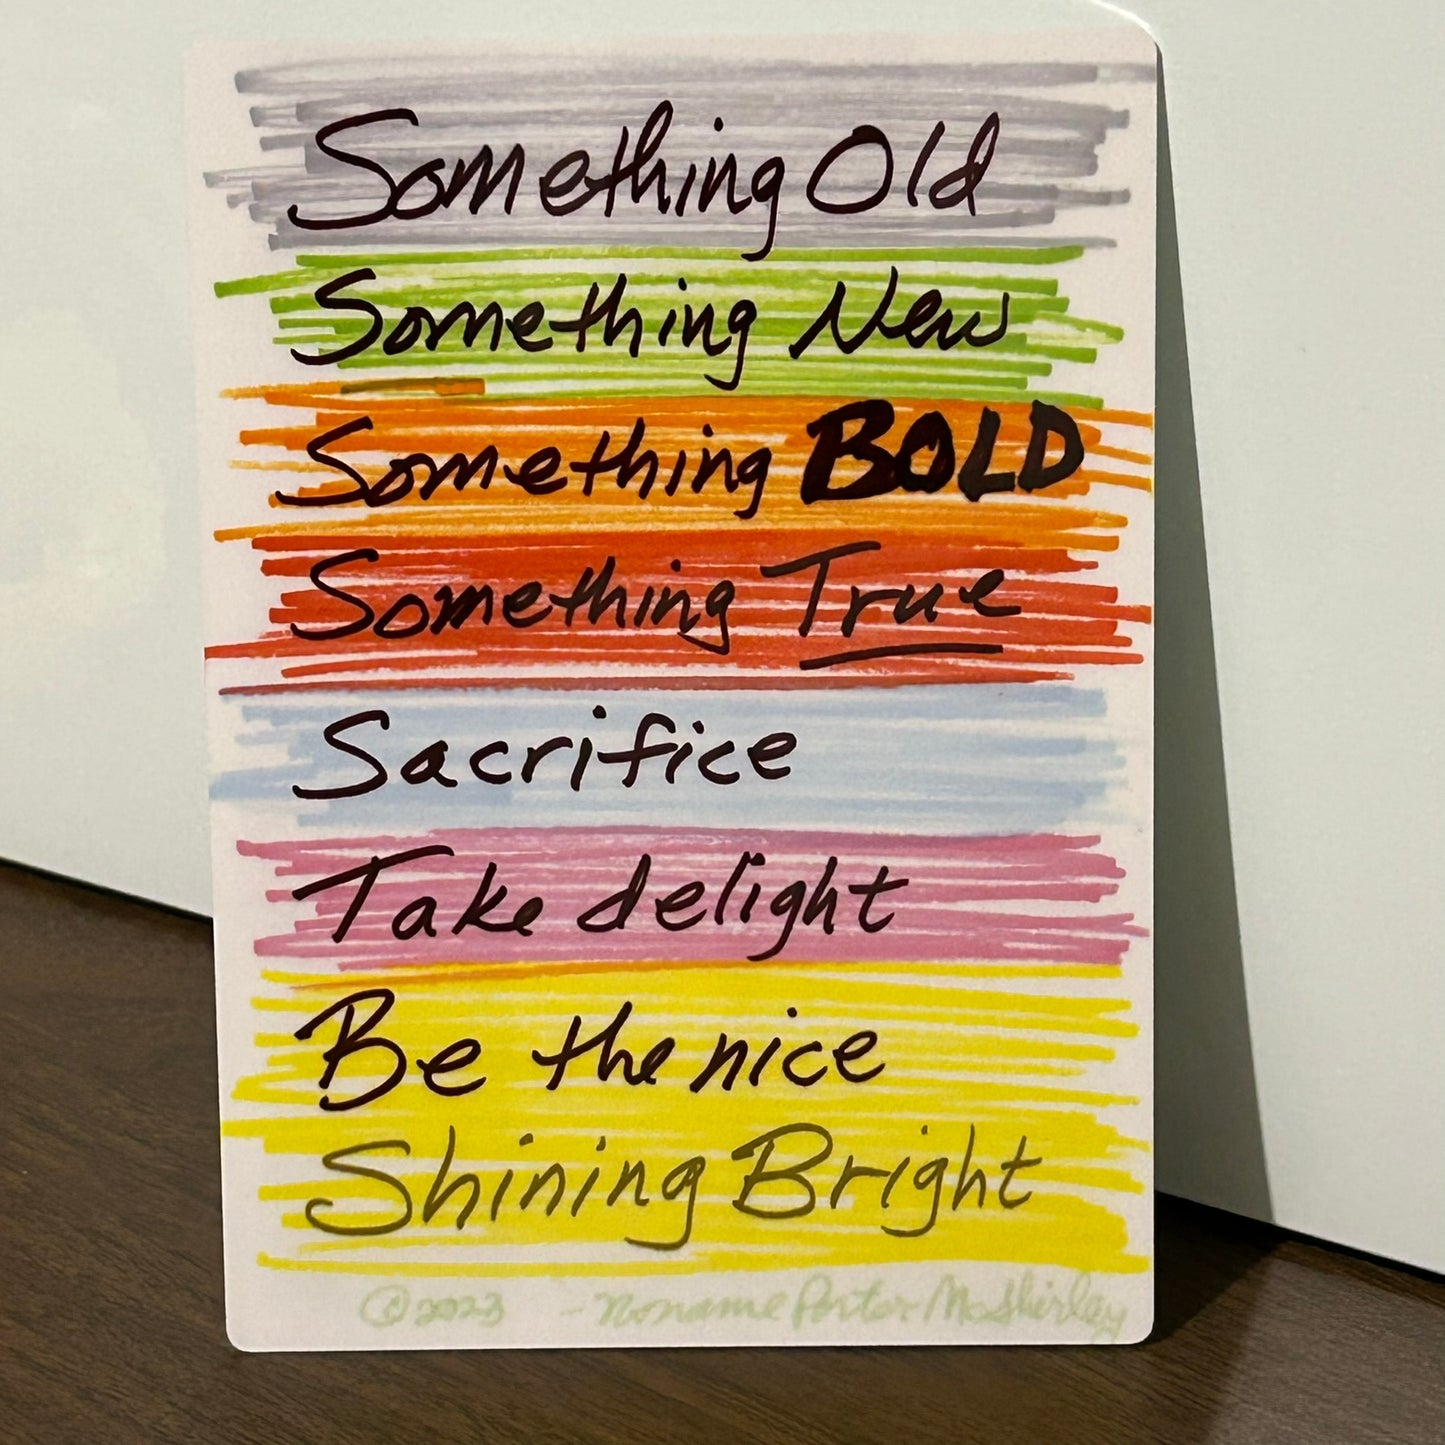 Something Old
Something New
Something BOLD
Something True
Sacrifice
Take delight
Be the nice
Shining Bright
©2023 - Noname Porter-McShirley